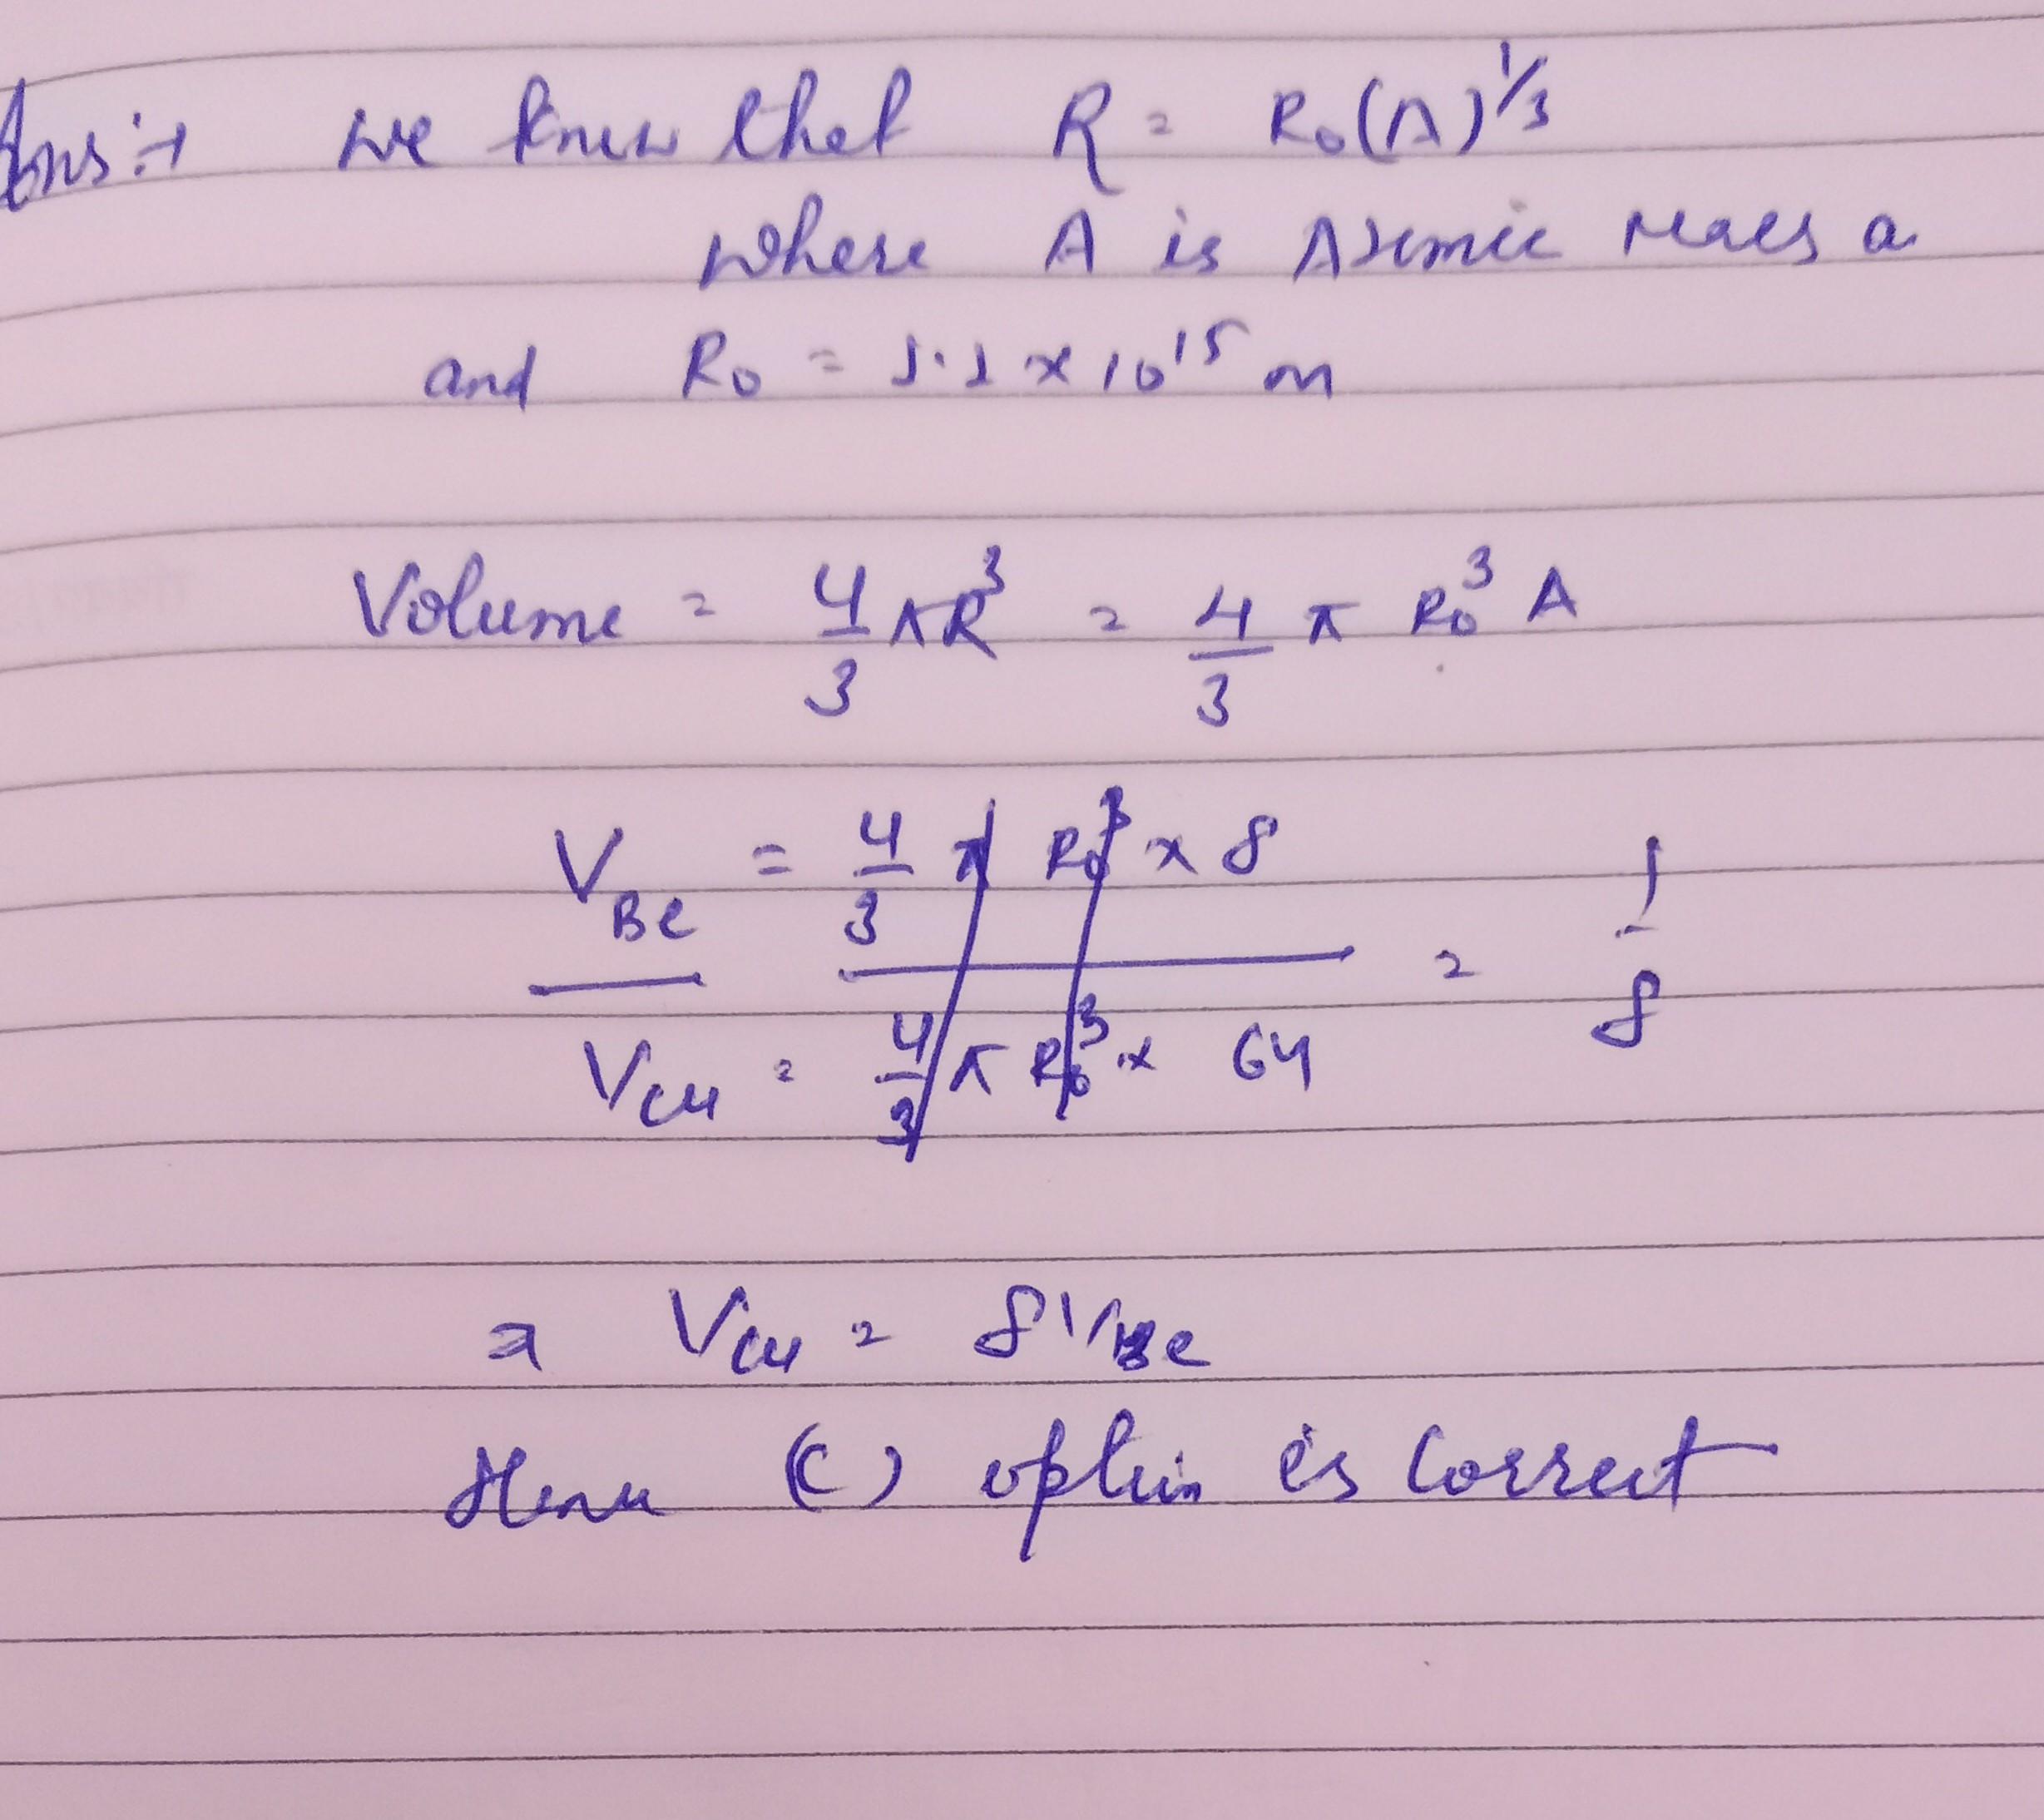 Ans:→ we know that R = R₀(A)^1/3
where A is Atomic mass a
and R₀ = 1.1 × 10^15 m
Volume = 4/3 πR³ = 4/3 π R₀³ A
V_Be / V_Cu = 4/3 π R₀³ × 8 / 4/3 π R₀³ × 64 = 1/8
⇒ V_Cu = 8V_Be
Hence (C) option is Correct